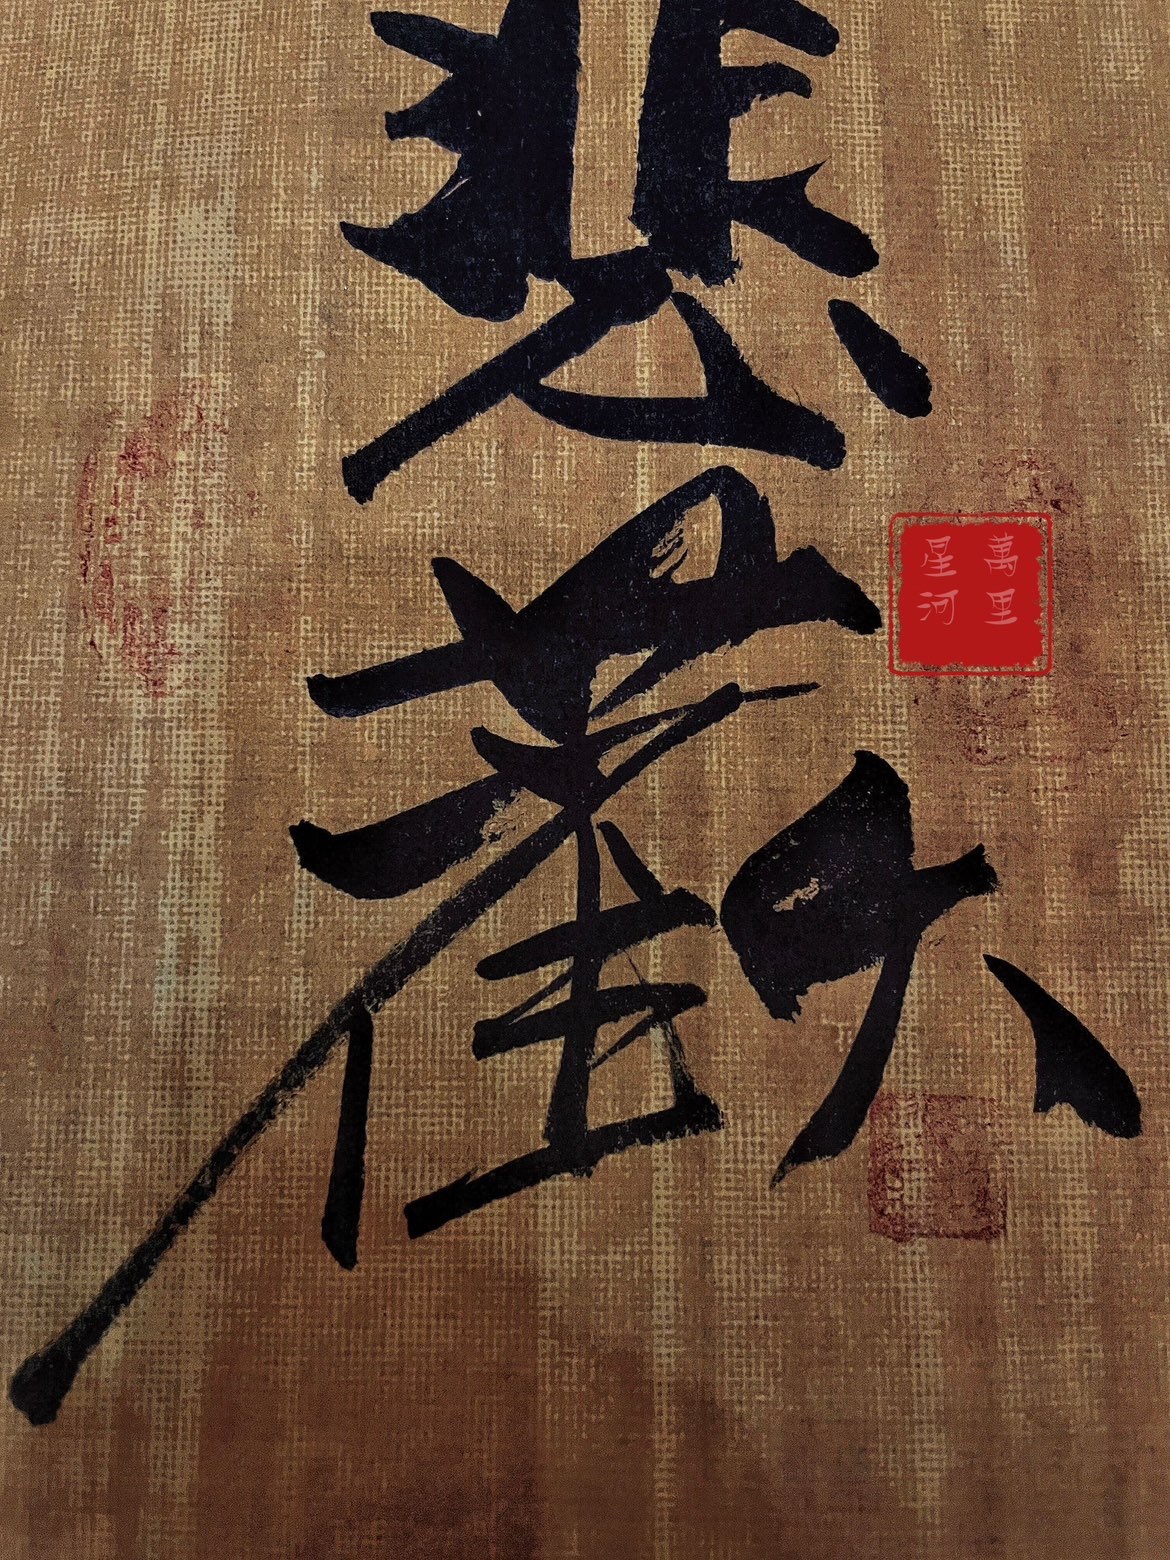 悲歡
萬里
星河